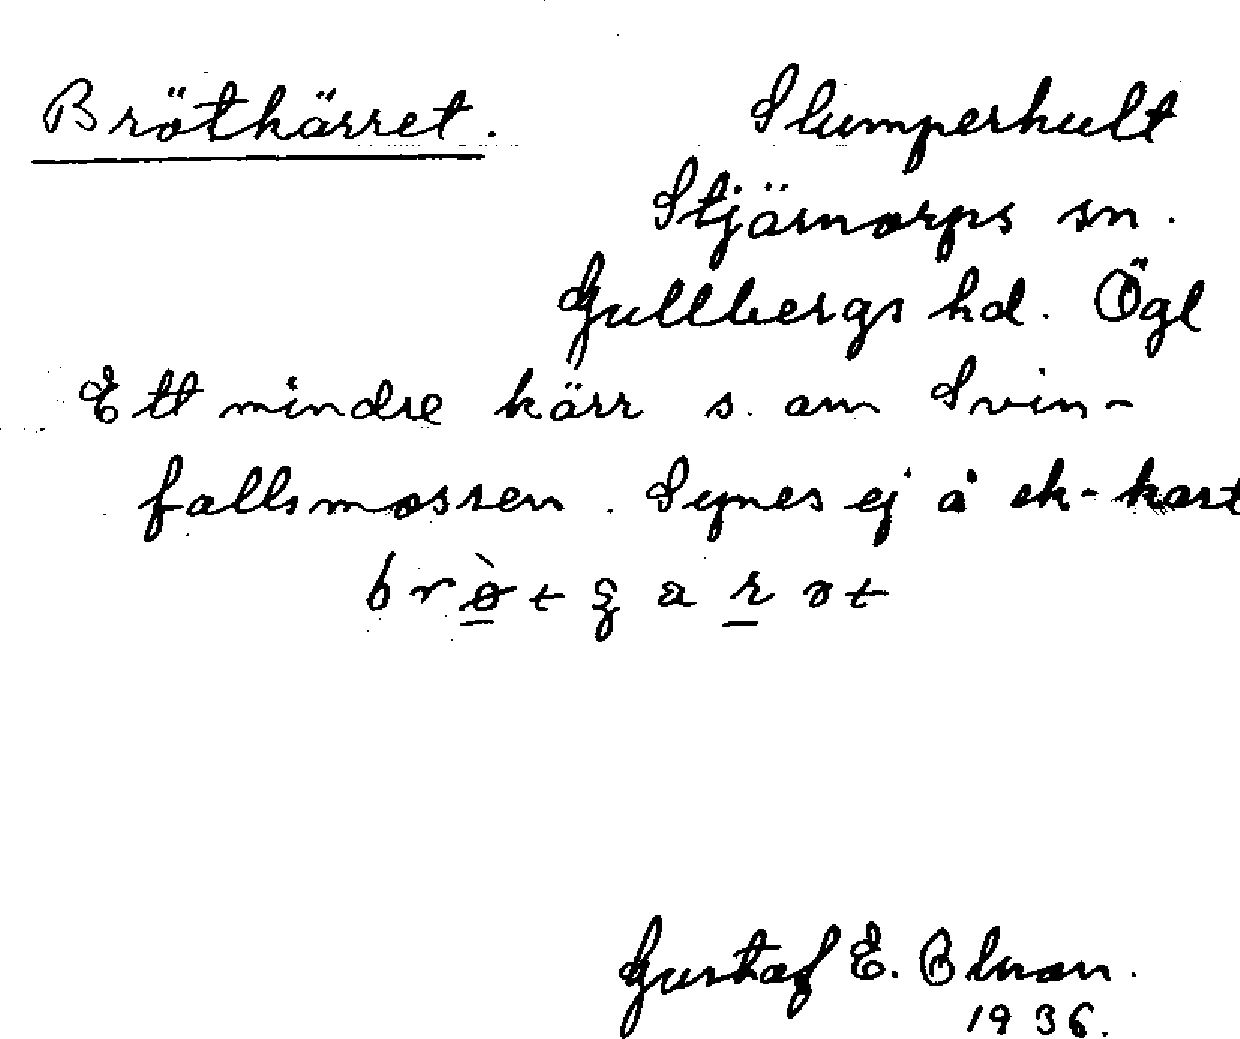 Bröthärret. Slumperhult
Stjärnorps sn.
Gullbergs hd. Ögl
Ett mindre kärr s. om Svin-
fallsmossen. Synes ej å ek-kart
Gustaf E.
1936.